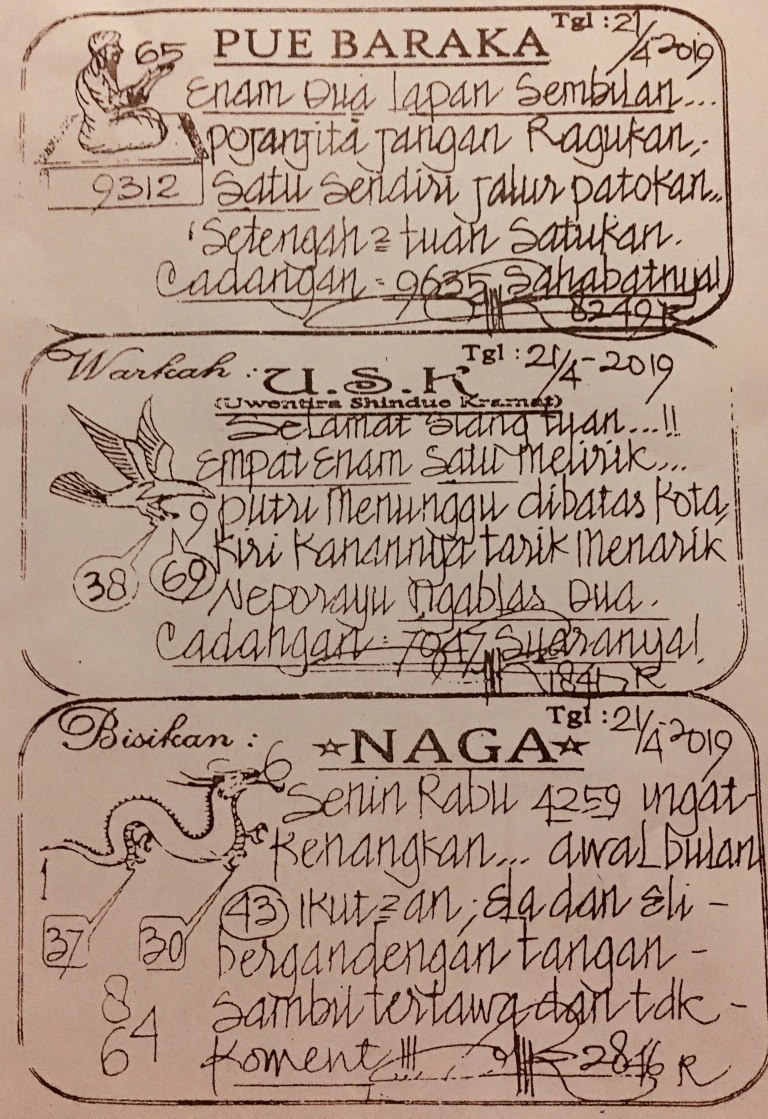 Tgl : 21/4-2019
PUE BARAKA
65
Enam Dua lapan Sembilan...
pojanjita jangan Ragukan,-
9312
Satu Sendiri jalur patokan..
Setengah2 tuan Satukan.
Cadangan = 9635 Sahabatnya!
8249 R
Warkah : U.S.K
Tgl : 21/4-2019
(Uwentira Shinduo Kramat)
Selamat Siang tuan...!!
Empat Enam Satu Melirik...
9
putri Menunggu dibatas Kota,
Kiri Kanannya tarik Menarik
38 69
Neporayu Ngablas Dua.
Cadangan = 7047 Suaranya!
1841 R
Bisikan :
Tgl : 21/4-2019
☆NAGA☆
6
Senin Rabu 4259 ingat-
Kenangkan... awal bulan
1
43 Ikut2an; Ela dan Eli -
37 30
bergandengan tangan -
Sambil tertawa dan tdk -
8
4
6
Koment !!!
R